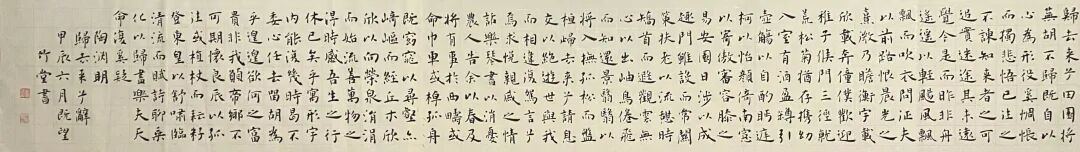 歸去來兮田園將
蕪胡不歸既自以
心為形役奚惆悵
而獨悲悟已往之
不諫知來者之可
追實迷途其未遠
覺今是而昨非舟
遙遙以輕颺風飄
飄而吹衣問征夫
以前路恨晨光之
熹微乃瞻衡宇載
欣載奔僮僕歡迎
稚子候門三徑就
荒松菊猶存攜幼
入室有酒盈樽引
壺觴以自酌眄庭
柯以怡顏倚南窗
以寄傲審容膝之
易安園日涉以成
趣門雖設而常關
策扶老以流憩時
矯首而遐觀雲無
心以出岫鳥倦飛
而知還景翳翳以
將入撫孤松而盤
桓歸去來兮請息
交以絕遊世與我
而相違復駕言兮
焉求悅親戚之情
話樂琴書以消憂
農人告余以春及
將有事於西疇或
命巾車或棹孤舟
既窈窕以尋壑亦
崎嶇而經丘木欣
欣以向榮泉涓涓
而始流善萬物之
得時感吾生之行
休已矣乎寓形宇
內能復幾時曷不
委心任去留胡為
乎遑遑欲何之富
貴非我願帝鄉不
可期懷良辰以孤
往或植杖而耘耔
登東皋以舒嘯臨
清流而賦詩聊乘
化以歸盡樂夫天
命復奚疑
陶淵明
歸去來兮辭
甲辰六月既望
竹堂書